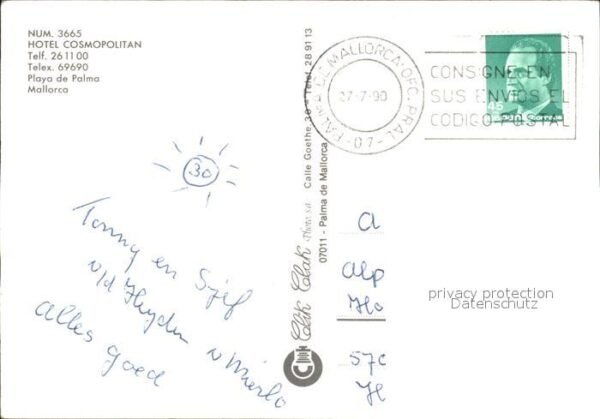 NUM. 3665
HOTEL COSMOPOLITAN
Telf. 261100
Telex. 69690
Playa de Palma
Mallorca
PALMA DE MALLORCA-OFC. PRAL
27-7-90
-07-
CONSIGNE EN
SUS ENVIOS EL
CODIGO POSTAL
45
30
Tonny en Sjef
v/d Heyden v Mierlo
alles goed
Clik Clak Photo s.a. Calle Goethe 30 - Telef. 289113
07011 - Palma de Mallorca
A
alp
Ho
57c
H
privacy protection
Datenschutz